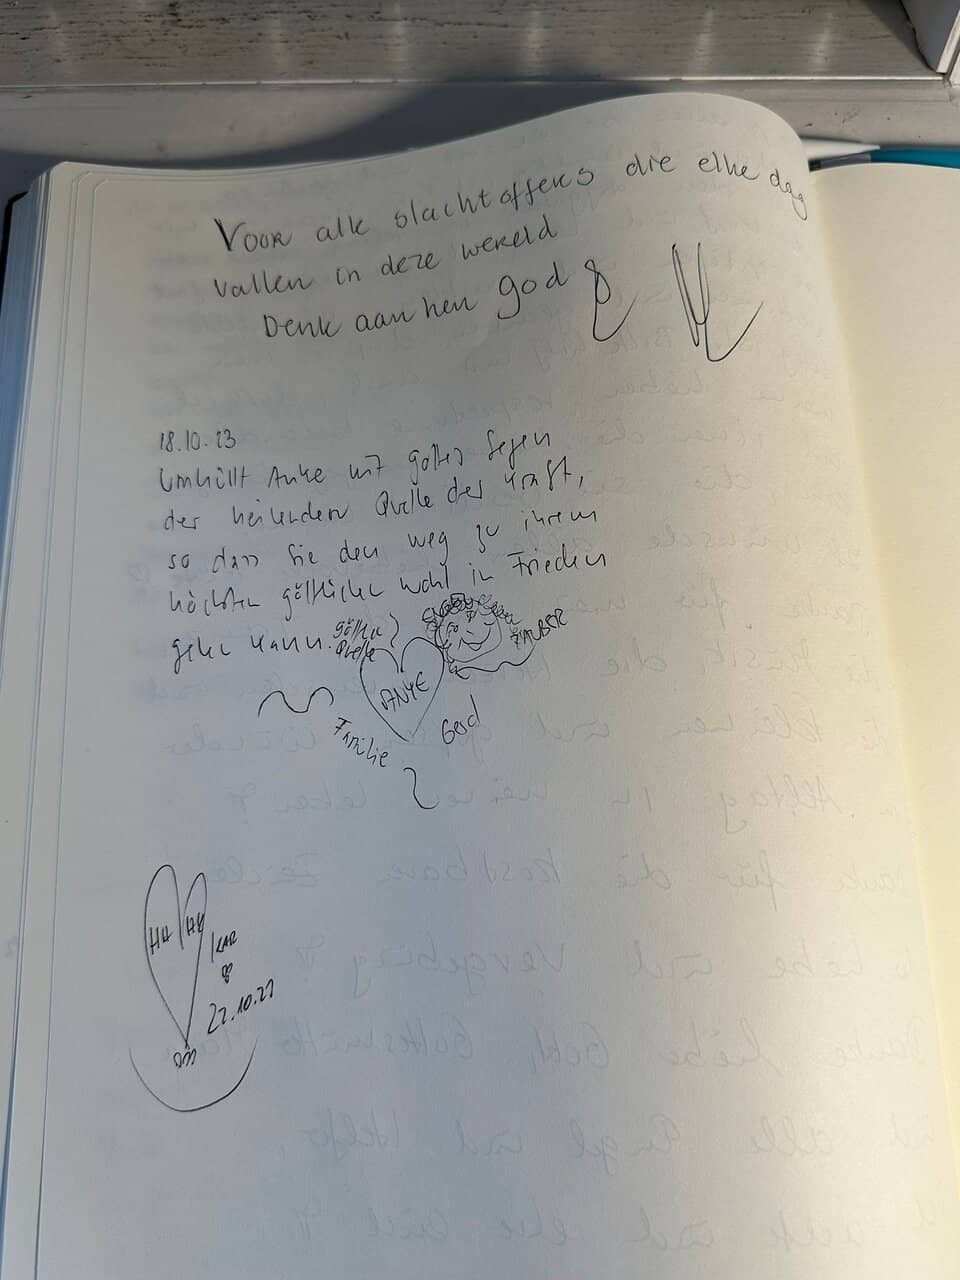 Voor alle slachtoffers die elke dag
vallen in deze wereld
Denk aan hen god
18.10.23
Umhüllt Anke mit gottes Segen
der heilenden Quelle der Kraft,
so dass Sie den weg zu ihrem
höchsten göttlichen wohl in Frieden
gehen kann.
Quelle
ZAUBER
ANKE
Familie
HH
22.10.23